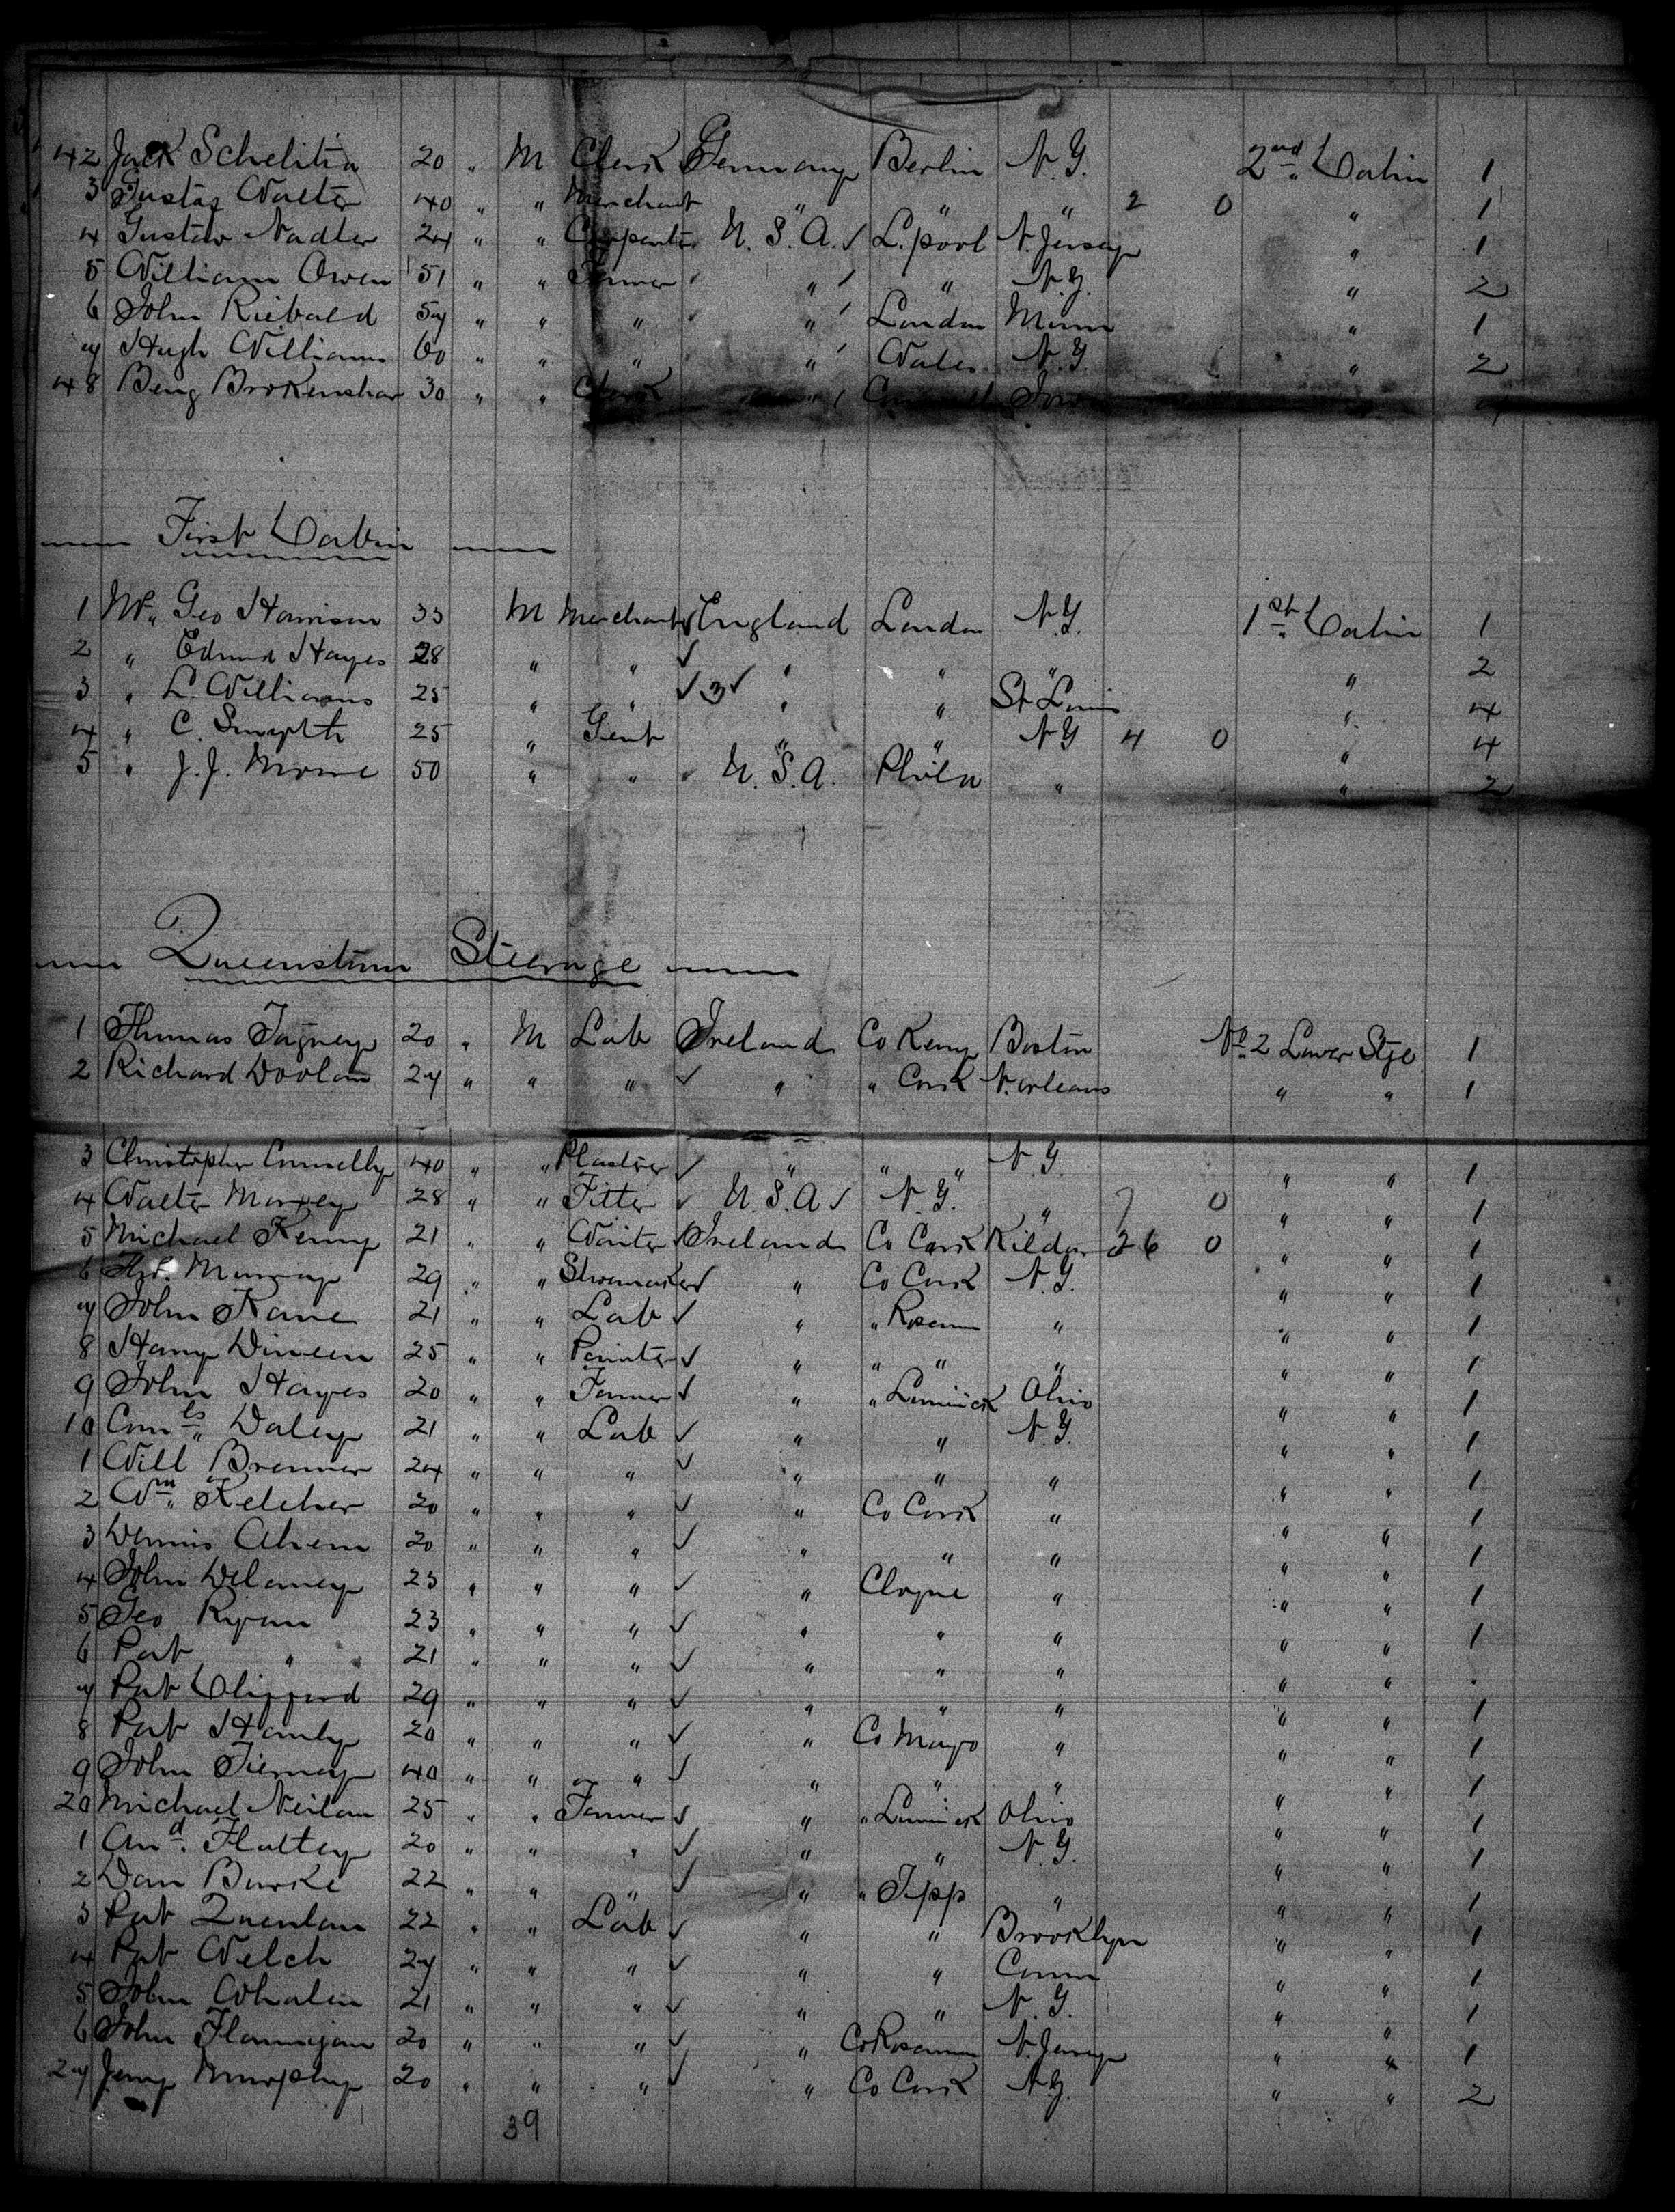 42 Jack Schelitia 20 " M Clerk Germany Berlin N.Y. 2nd Cabin 1
3 Gustag Walter 40 " " Merchant " " " 2 0 " 1
4 Gustav Nadler 24 " " Carpenter U.S.A. ✓ L.pool N. Jersey " 1
5 William Owen 51 " " Farmer " " N.Y. " 2
6 John Riebald 57 " " " " London Minn " 1
7 Hugh Williams 60 " " " " Wales N.Y. " 2
48 Benj Brokenshar 30 " " Clerk " Iowa
First Cabin
1 Mr. Geo Harrison 33 M Merchant ✓ England London N.Y. 1st Cabin 1
2 " Edmund Hayes 28 " " ✓ " " " " 2
3 " L. Williams 25 " " ✓ 3 ✓ " " St Louis " 4
4 " C. Smyth 25 " Gent " " N.Y 4 0 " 4
5 " J.J. Morse 50 " " U.S.A. Phila " " 2
Queenstown Steerage
1 Thomas Tagney 20 " M Lab Ireland Co Kerry Boston No. 2 Lower Stge 1
2 Richard Doolan 27 " " " ✓ " " Cork N. orleans " " 1
3 Christopher Connelly 40 " " Plastrer ✓ " " " N.Y. " " 1
4 Walter Morrey 28 " " Fitter ✓ U.S.A ✓ N.Y. " 7 0 " " 1
5 Michael Kenny 21 " " Waiter ✓ Ireland Co Cork Kildar 26 0 " " 1
6 Thos. Murray 29 " " Shoemaker ✓ " Co Cork N.Y. " " 1
7 John Kane 21 " " Lab ✓ " " Roscom " " " 1
8 Harry Dineen 25 " " Painter ✓ " " " " " " 1
9 John Hayes 20 " " Farmer ✓ " " Limrick Ohio " " 1
10 Corn.ls Daley 21 " " Lab ✓ " " N.Y. " " 1
1 Will Brenner 24 " " " ✓ " " " " " 1
2 Wm. Kelcher 20 " " " ✓ " Co Cork " " " 1
3 Dennis Ahern 20 " " " ✓ " " " " " 1
4 John Delaney 23 " " " ✓ " Cloyne " " " 1
5 Geo Ryan 23 " " " ✓ " " " " " 1
6 Pat " 21 " " " ✓ " " " " " "
7 Pat Clifford 29 " " " ✓ " " " " " 1
8 Pat Hanly 20 " " " ✓ " Co Mayo " " " 1
9 John Tierney 40 " " " ✓ " " " " " 1
20 Michael Neilan 25 " " Farmer ✓ " " Limrick Ohio " " 1
1 And. Flattey 20 " " " ✓ " " N.Y. " " 1
2 Dan Burke 22 " " " ✓ " " Tipp " " " 1
3 Pat Quenlan 22 " " Lab ✓ " " Brooklyn " " 1
4 Pat Welch 27 " " " ✓ " " Conn " " 1
5 John Whalen 21 " " " ✓ " " N.Y. " " 1
6 John Flannigan 20 " " " ✓ " Co Roscomm N. Jersey " " 1
27 Jerry Murphy 20 " " " ✓ " Co Cork N.Y. " " 2
39